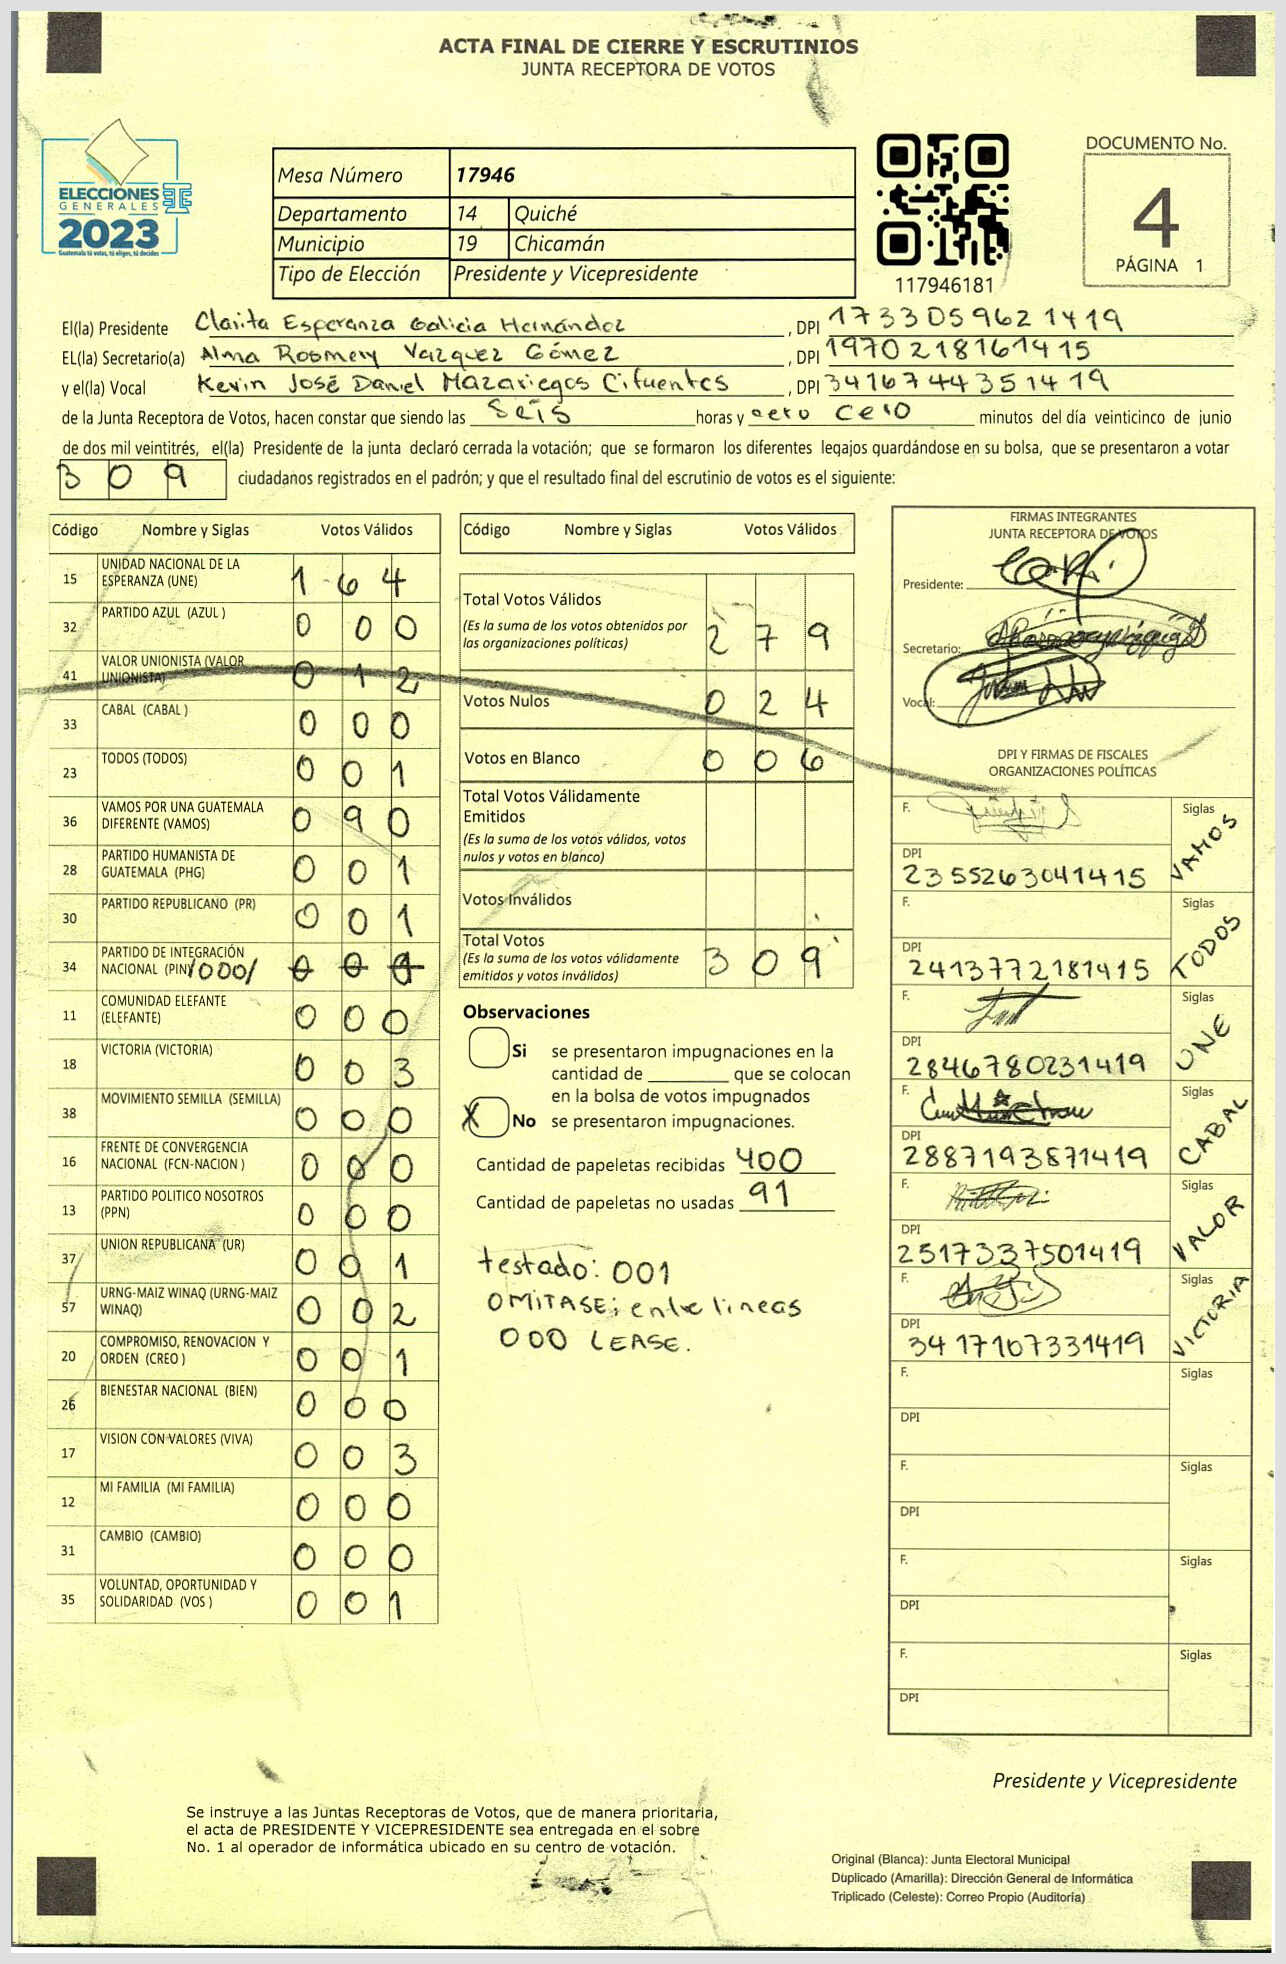 ACTA FINAL DE CIERRE Y ESCRUTINIOS
JUNTA RECEPTORA DE VOTOS
ELECCIONES
GENERALES
2023
Guatemala tú votas, tú eliges, tú decides
Mesa Número 17946
Departamento 14 Quiché
Municipio 19 Chicamán
Tipo de Elección Presidente y Vicepresidente
117946181
DOCUMENTO No.
4
PÁGINA 1
El(la) Presidente Clarita Esperanza Galicia Hernández, DPI 1733059621419
EL(la) Secretario(a) Alma Rosmery Vazquez Gómez, DPI 1970218161415
y el(la) Vocal Kevin José Daniel Mazariegos Cifuentes, DPI 3416744351419
de la Junta Receptora de Votos, hacen constar que siendo las seis horas y cero cero minutos del día veinticinco de junio
de dos mil veintitrés, el(la) Presidente de la junta declaró cerrada la votación; que se formaron los diferentes legajos guardándose en su bolsa, que se presentaron a votar
309 ciudadanos registrados en el padrón; y que el resultado final del escrutinio de votos es el siguiente:
Código Nombre y Siglas Votos Válidos
15 UNIDAD NACIONAL DE LA ESPERANZA (UNE) 1 6 4
32 PARTIDO AZUL (AZUL ) 0 0 0
41 VALOR UNIONISTA (VALOR UNIONISTA) 0 1 2
33 CABAL (CABAL ) 0 0 0
23 TODOS (TODOS) 0 0 1
36 VAMOS POR UNA GUATEMALA DIFERENTE (VAMOS) 0 9 0
28 PARTIDO HUMANISTA DE GUATEMALA (PHG) 0 0 1
30 PARTIDO REPUBLICANO (PR) 0 0 1
34 PARTIDO DE INTEGRACIÓN NACIONAL (PIN) /000/ 0 0 1
11 COMUNIDAD ELEFANTE (ELEFANTE) 0 0 0
18 VICTORIA (VICTORIA) 0 0 3
38 MOVIMIENTO SEMILLA (SEMILLA) 0 0 0
16 FRENTE DE CONVERGENCIA NACIONAL (FCN-NACION ) 0 0 0
13 PARTIDO POLITICO NOSOTROS (PPN) 0 0 0
37 UNION REPUBLICANA (UR) 0 0 1
57 URNG-MAIZ WINAQ (URNG-MAIZ WINAQ) 0 0 2
20 COMPROMISO, RENOVACION Y ORDEN (CREO ) 0 0 1
26 BIENESTAR NACIONAL (BIEN) 0 0 0
17 VISION CON VALORES (VIVA) 0 0 3
12 MI FAMILIA (MI FAMILIA) 0 0 0
31 CAMBIO (CAMBIO) 0 0 0
35 VOLUNTAD, OPORTUNIDAD Y SOLIDARIDAD (VOS ) 0 0 1
Código Nombre y Siglas Votos Válidos
Total Votos Válidos 2 7 9
(Es la suma de los votos obtenidos por
las organizaciones políticas)
Votos Nulos 0 2 4
Votos en Blanco 0 0 6
Total Votos Válidamente
Emitidos
(Es la suma de los votos válidos, votos
nulos y votos en blanco)
Votos Inválidos
Total Votos 3 0 9
(Es la suma de los votos válidamente
emitidos y votos inválidos)
Observaciones
Si se presentaron impugnaciones en la
cantidad de ________ que se colocan
en la bolsa de votos impugnados
X No se presentaron impugnaciones.
Cantidad de papeletas recibidas 400
Cantidad de papeletas no usadas 91
testado: 001
OMITASE; entre lineas
000 LEASE.
FIRMAS INTEGRANTES
JUNTA RECEPTORA DE VOTOS
Presidente:
Secretario:
Vocal:
DPI Y FIRMAS DE FISCALES
ORGANIZACIONES POLÍTICAS
F. Siglas VAMOS
DPI 2355263041415
F. Siglas TODOS
DPI 2413772181415
F. Siglas UNE
DPI 2846780231419
F. Siglas CABAL
DPI 2887193871419
F. Siglas VALOR
DPI 2517337501419
F. Siglas VICTORIA
DPI 3417107331419
F. Siglas
DPI
F. Siglas
DPI
F. Siglas
DPI
F. Siglas
DPI
Presidente y Vicepresidente
Se instruye a las Juntas Receptoras de Votos, que de manera prioritaria,
el acta de PRESIDENTE Y VICEPRESIDENTE sea entregada en el sobre
No. 1 al operador de informática ubicado en su centro de votación.
Original (Blanca): Junta Electoral Municipal
Duplicado (Amarilla): Dirección General de Informática
Triplicado (Celeste): Correo Propio (Auditoría)